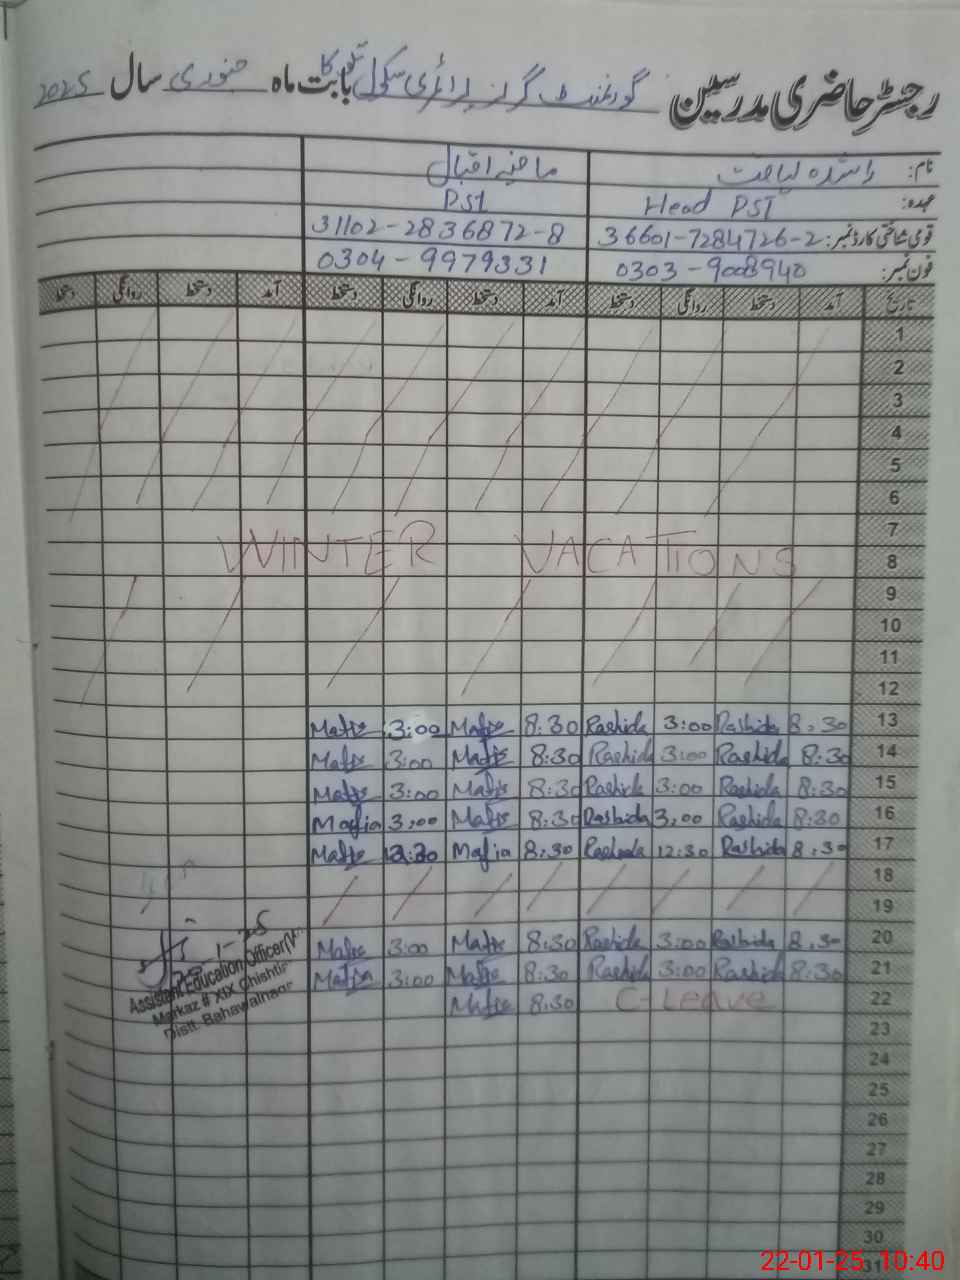 رجسٹر حاضری مدرسین گورنمنٹ گرلز پرائمری سکول بابت ماہ جنوری سال 2025
نام: راشدہ لیاقت مافیہ اقبال
عہدہ: Head PST PST
قومی شناختی کارڈ نمبر: 36601-7284726-2 31102-2836872-8
فون نمبر: 0303-9008940 0304-9979331
تاریخ آمد دستخط روانگی دستخط آمد دستخط روانگی دستخط آمد دستخط روانگی دستخط
1
2
3
4
5
6
7
WINTER VACATIONS
8
9
10
11
12
Mafia 3:00 Mafia 8:30 Rashida 3:00 Rashida 8:30 13
Mafia 3:00 Mafia 8:30 Rashida 3:00 Rashida 8:30 14
Mafia 3:00 Mafia 8:30 Rashida 3:00 Rashida 8:30 15
Mafia 3:00 Mafia 8:30 Rashida 3:00 Rashida 8:30 16
Mafia Mafia 8:30 Rashida 12:30 Rashida 8:30 17
18
19
Mafia 3:00 Mafia 8:30 Rashida 3:00 Rashida 8:30 20
Mafia 3:00 Mafia 8:30 Rashida 3:00 Rashida 8:30 21
Mafia 8:30 C-Leave 22
Assistant Education Officer(W
Markaz # XIX Chishtir
Distt. Bahawalnagar
23
24
25
26
27
28
29
30
31
22-01-25 10:40